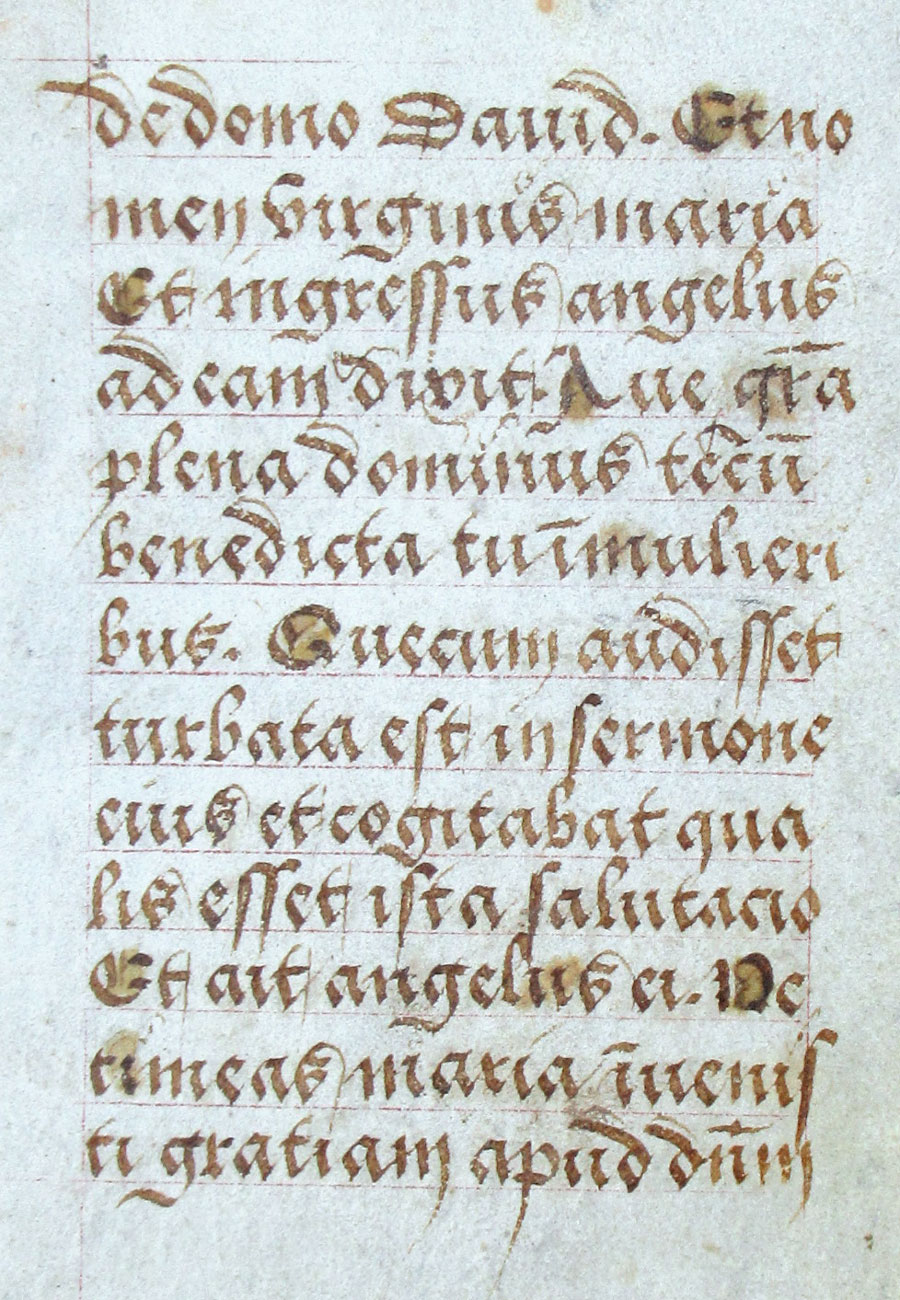 de domo Dauid. Et no
men virginis maria
Et ingressus angelus
ad eam dixit. Aue gr̄a
plena dominus tecū
benedicta tu ī mulieri
bus. Que cum audisset
turbata est in sermone
eius et cogitabat qua
lis esset ista salutacio
Et ait angelus ei. Ne
timeas maria īuenis
ti gratiam apud dn̄m